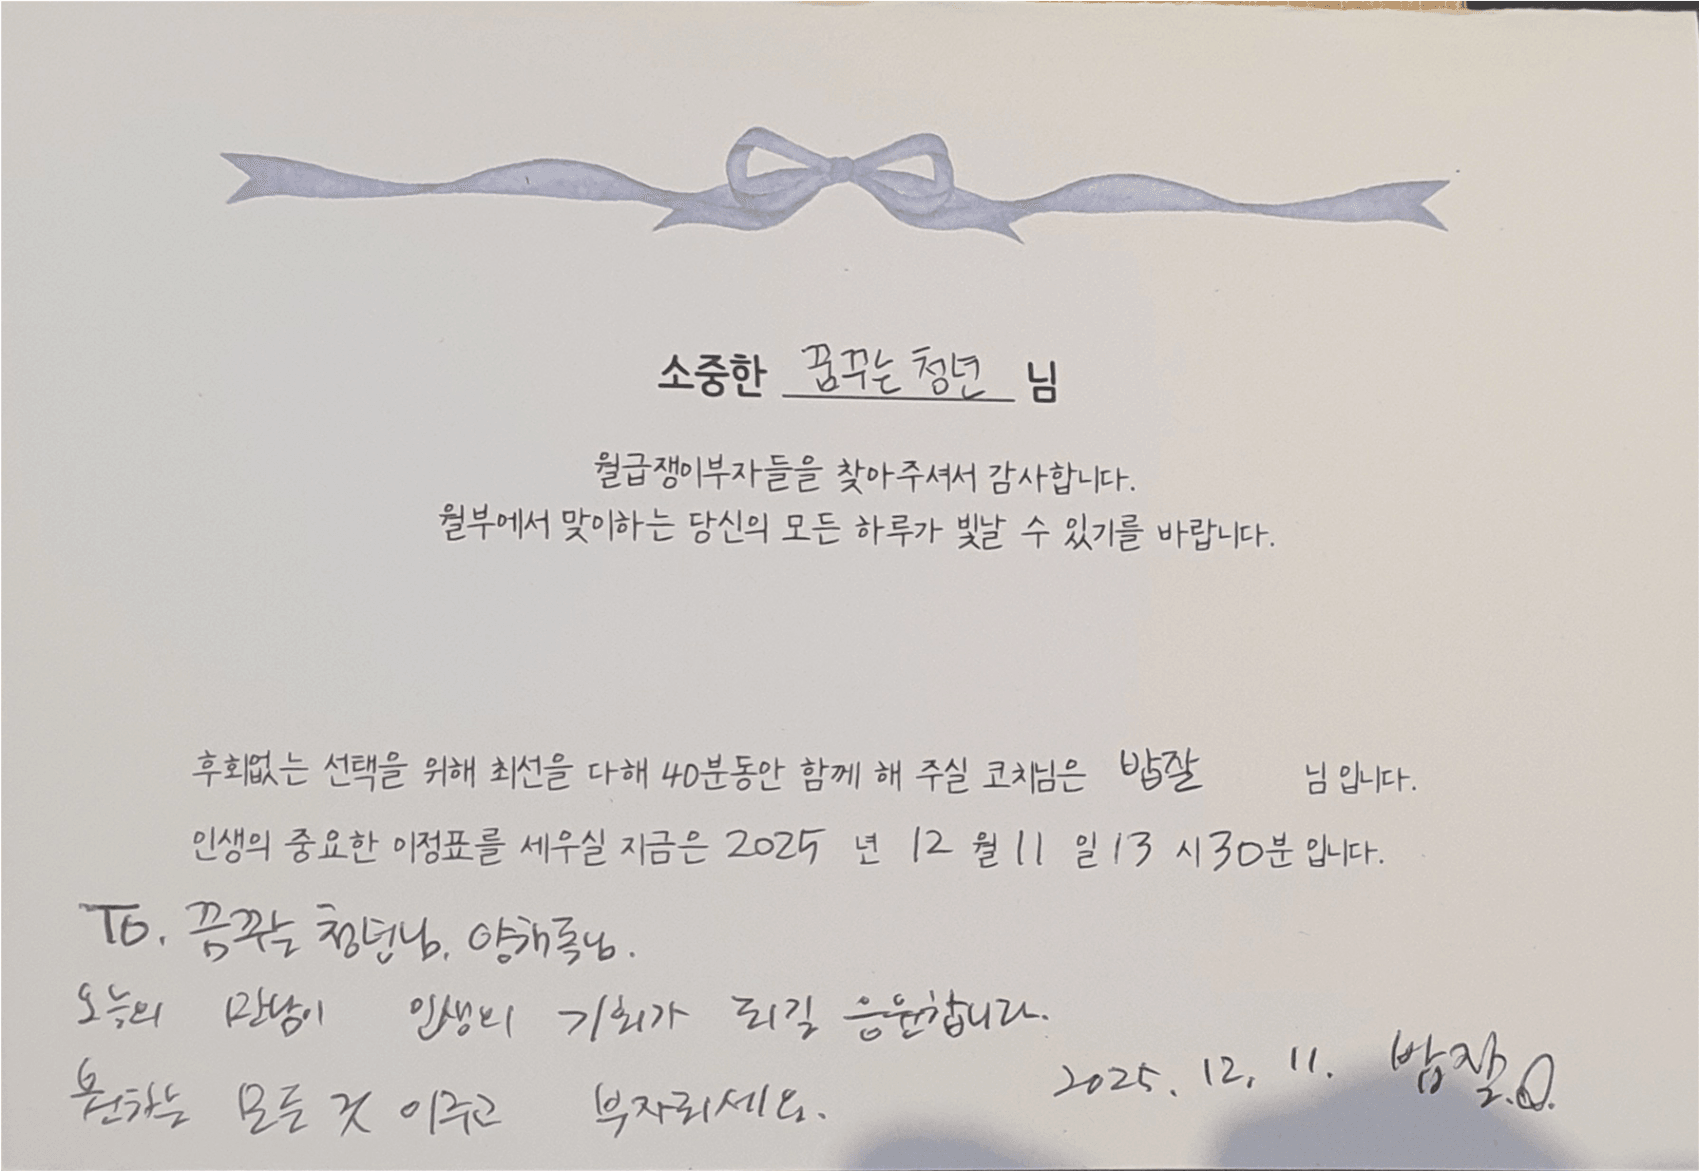 소중한 꿈꾸는 청년 님
월급쟁이부자들을 찾아주셔서 감사합니다.
월부에서 맞이하는 당신의 모든 하루가 빛날 수 있기를 바랍니다.
후회없는 선택을 위해 최선을 다해 40분동안 함께 해 주실 코치님은 밥잘 님 입니다.
인생의 중요한 이정표를 세우실 지금은 2025 년 12 월 11 일 13 시 30분 입니다.
To. 꿈꾸는 청년님, 양채록님.
오늘의 만남이 인생의 기회가 되길 응원합니다.
원하는 모든 것 이루고 부자되세요.
2025. 12. 11. 밥잘.